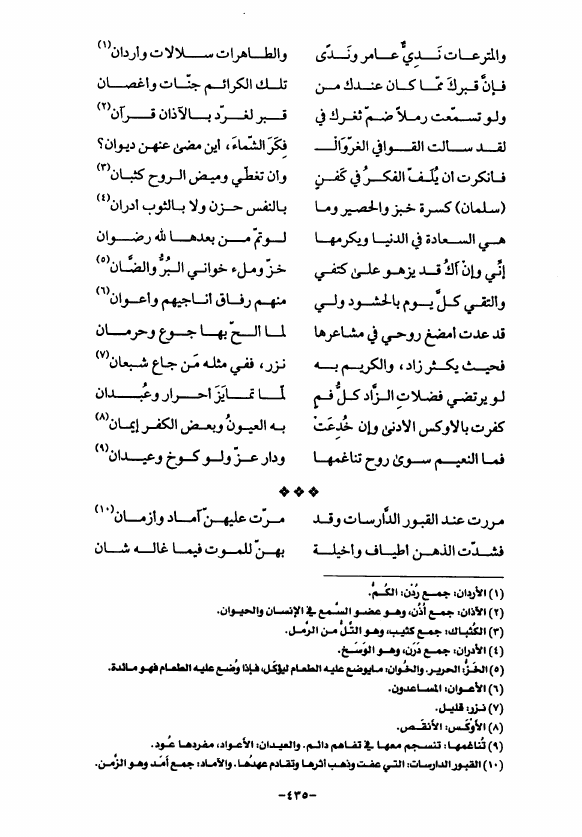 والمترعات نَديٌّ عامر ونَدًى والطاهرات سلالات وأردان(١)
فإنَّ قبركَ ممّا كان عندك من تلك الكرائم جنّات وأغصان
ولو تسمّعت رملاً ضمّ ثغرك في قبر لغرّد بالآذان قرآن(٢)
لقد سالت القوافي الغرّ والْـ فِكَرَ الشّماءَ، أين مضىٰ عنهن ديوان؟
فأنكرت أن يُلَفّ الفكرُ في كَفَنٍ وأن تغطّي وميض الروح كثبان(٣)
(سلمان) كسرة خبز والحصير وما بالنفس حزن ولا بالثوب أدران(٤)
هي السعادة في الدنيا ويكرمها لو تمّ من بعدها لله رضوان
إنّي وإنْ أكُ قد يزهو علىٰ كتفي خزّ وملء خواني البُرُّ والضَّان(٥)
وألتقي كلَّ يوم بالحشود ولي منهم رفاق أناجيهم وأعوان(٦)
قد عدت أمضغ روحي في مشاعرها لما ألحّ بها جوع وحرمان
فحيث يكثر زاد، والكريم به نزر، ففي مثله مَن جاع شبعان(٧)
لو يرتضي فضلاتِ الزَّاد كلُّ فمٍ لمّا تمايَزَ أحرار وعُبْدان
كفرت بالأوكس الأدنىٰ وإن خُدِعَتْ به العيونُ وبعض الكفر إيمان(٨)
فما النعيم سوىٰ روح تناغمها ودار عزّ ولو كوخ وعيدان(٩)
مررت عند القبور الدَّارسات وقد مرّت عليهنّ آماد وأزمان(١٠)
فشدّت الذهن أطياف وأخيلة بهنّ للموت فيما غاله شان
(١) الأردان: جمع رُدْن: الكُمُّ.
(٢) الآذان: جمع أُذُن، وهو عضو السَّمع في الإنسان والحيوان.
(٣) الكُثبان: جمع كثيب، وهو التَّلُّ من الرَّمل.
(٤) الأدران: جمع دَرَن، وهو الوَسَخ.
(٥) الخَزُّ: الحرير. والخُوان: مايوضع عليه الطعام ليُؤكل، فإذا وُضع عليه الطعام فهو مائدة.
(٦) الأعوان: المساعدون.
(٧) نزر: قليل.
(٨) الأَوْكَس: الأنقَص.
(٩) تُناغمها: تنسجم معها في تفاهم دائم. والعيدان: الأعواد، مفردها عُود.
(١٠) القبور الدارسات: التي عفت وذهب أثرها وتقادم عهدُها. والآماد: جمع أمَد وهو الزَّمن.
-٤٣٥-